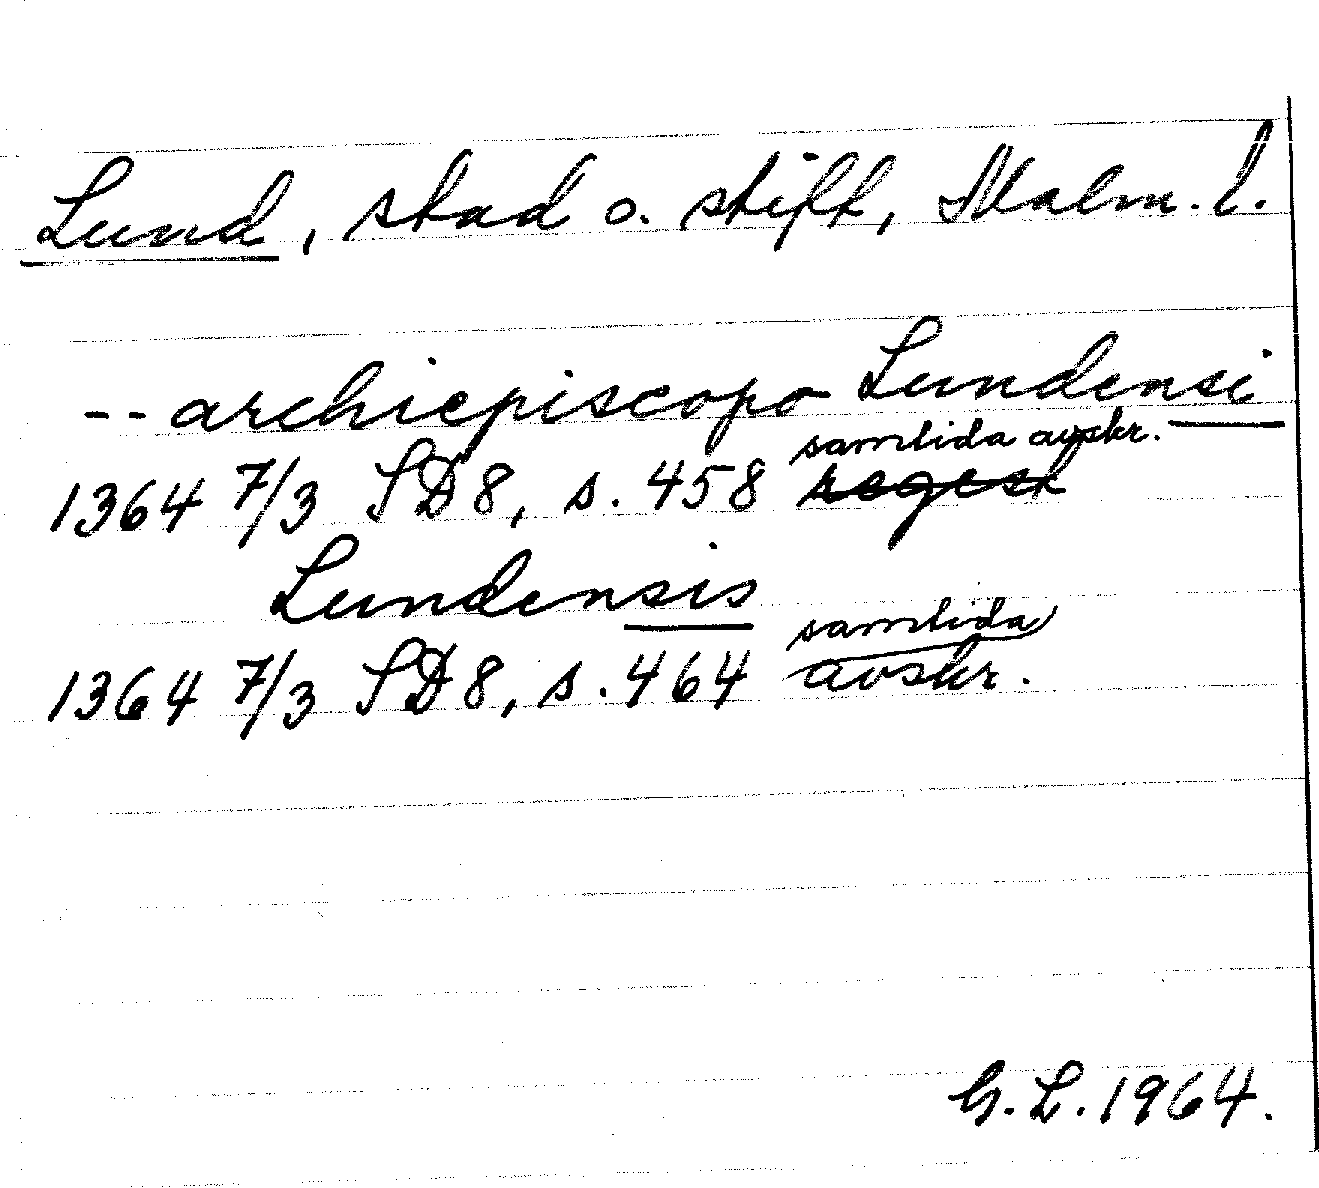 Lund, stad o. stift, Malm. l.
-- archiepiscopo Lundensi
samtida avskr.
1364 7/3 SD8, s. 458 regest
Lundensis
samtida
1364 7/3 SD8, s. 464 avskr.
G. L. 1964.